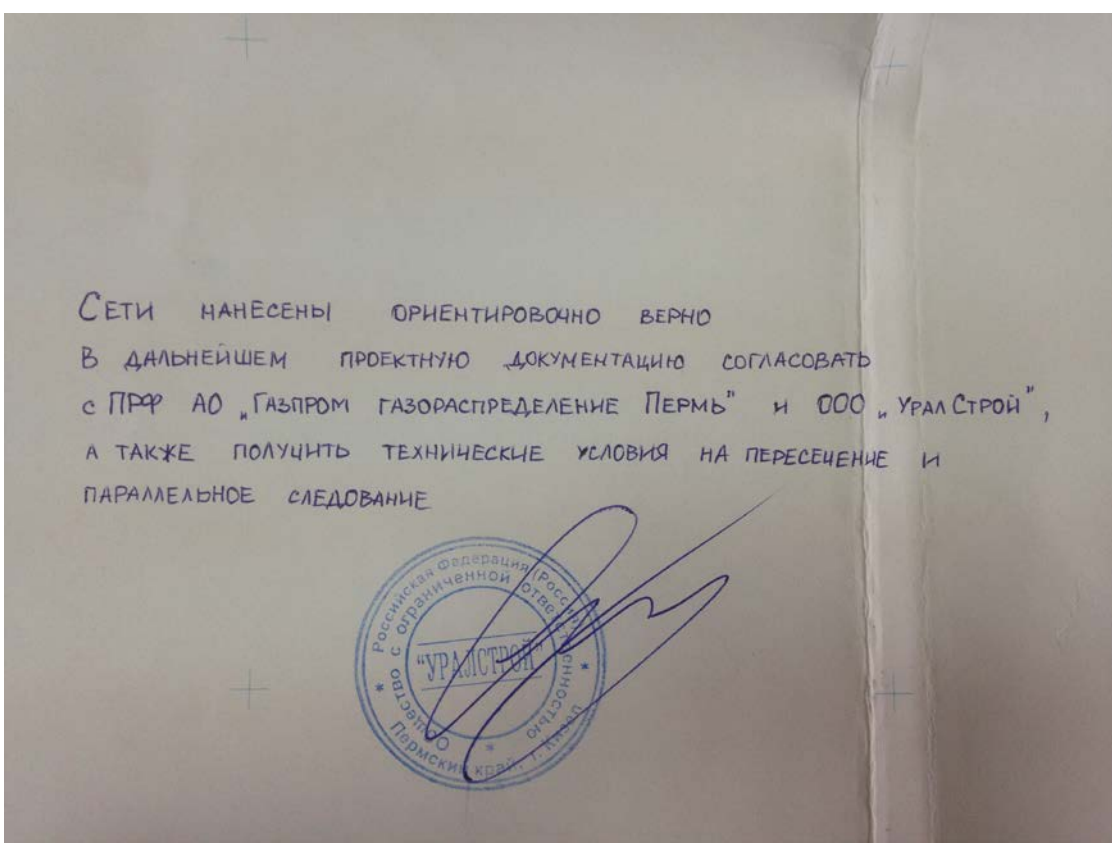 Сети нанесены ориентировочно верно
В дальнейшем проектную документацию согласовать
с ПРФ АО „Газпром газораспределение Пермь" и ООО „УралСтрой",
а также получить технические условия на пересечение и
параллельное следование
Российская Федерация (Россия)
Общество с ограниченной ответственностью
"УРАЛСТРОЙ"
Пермский край, г. Кизел